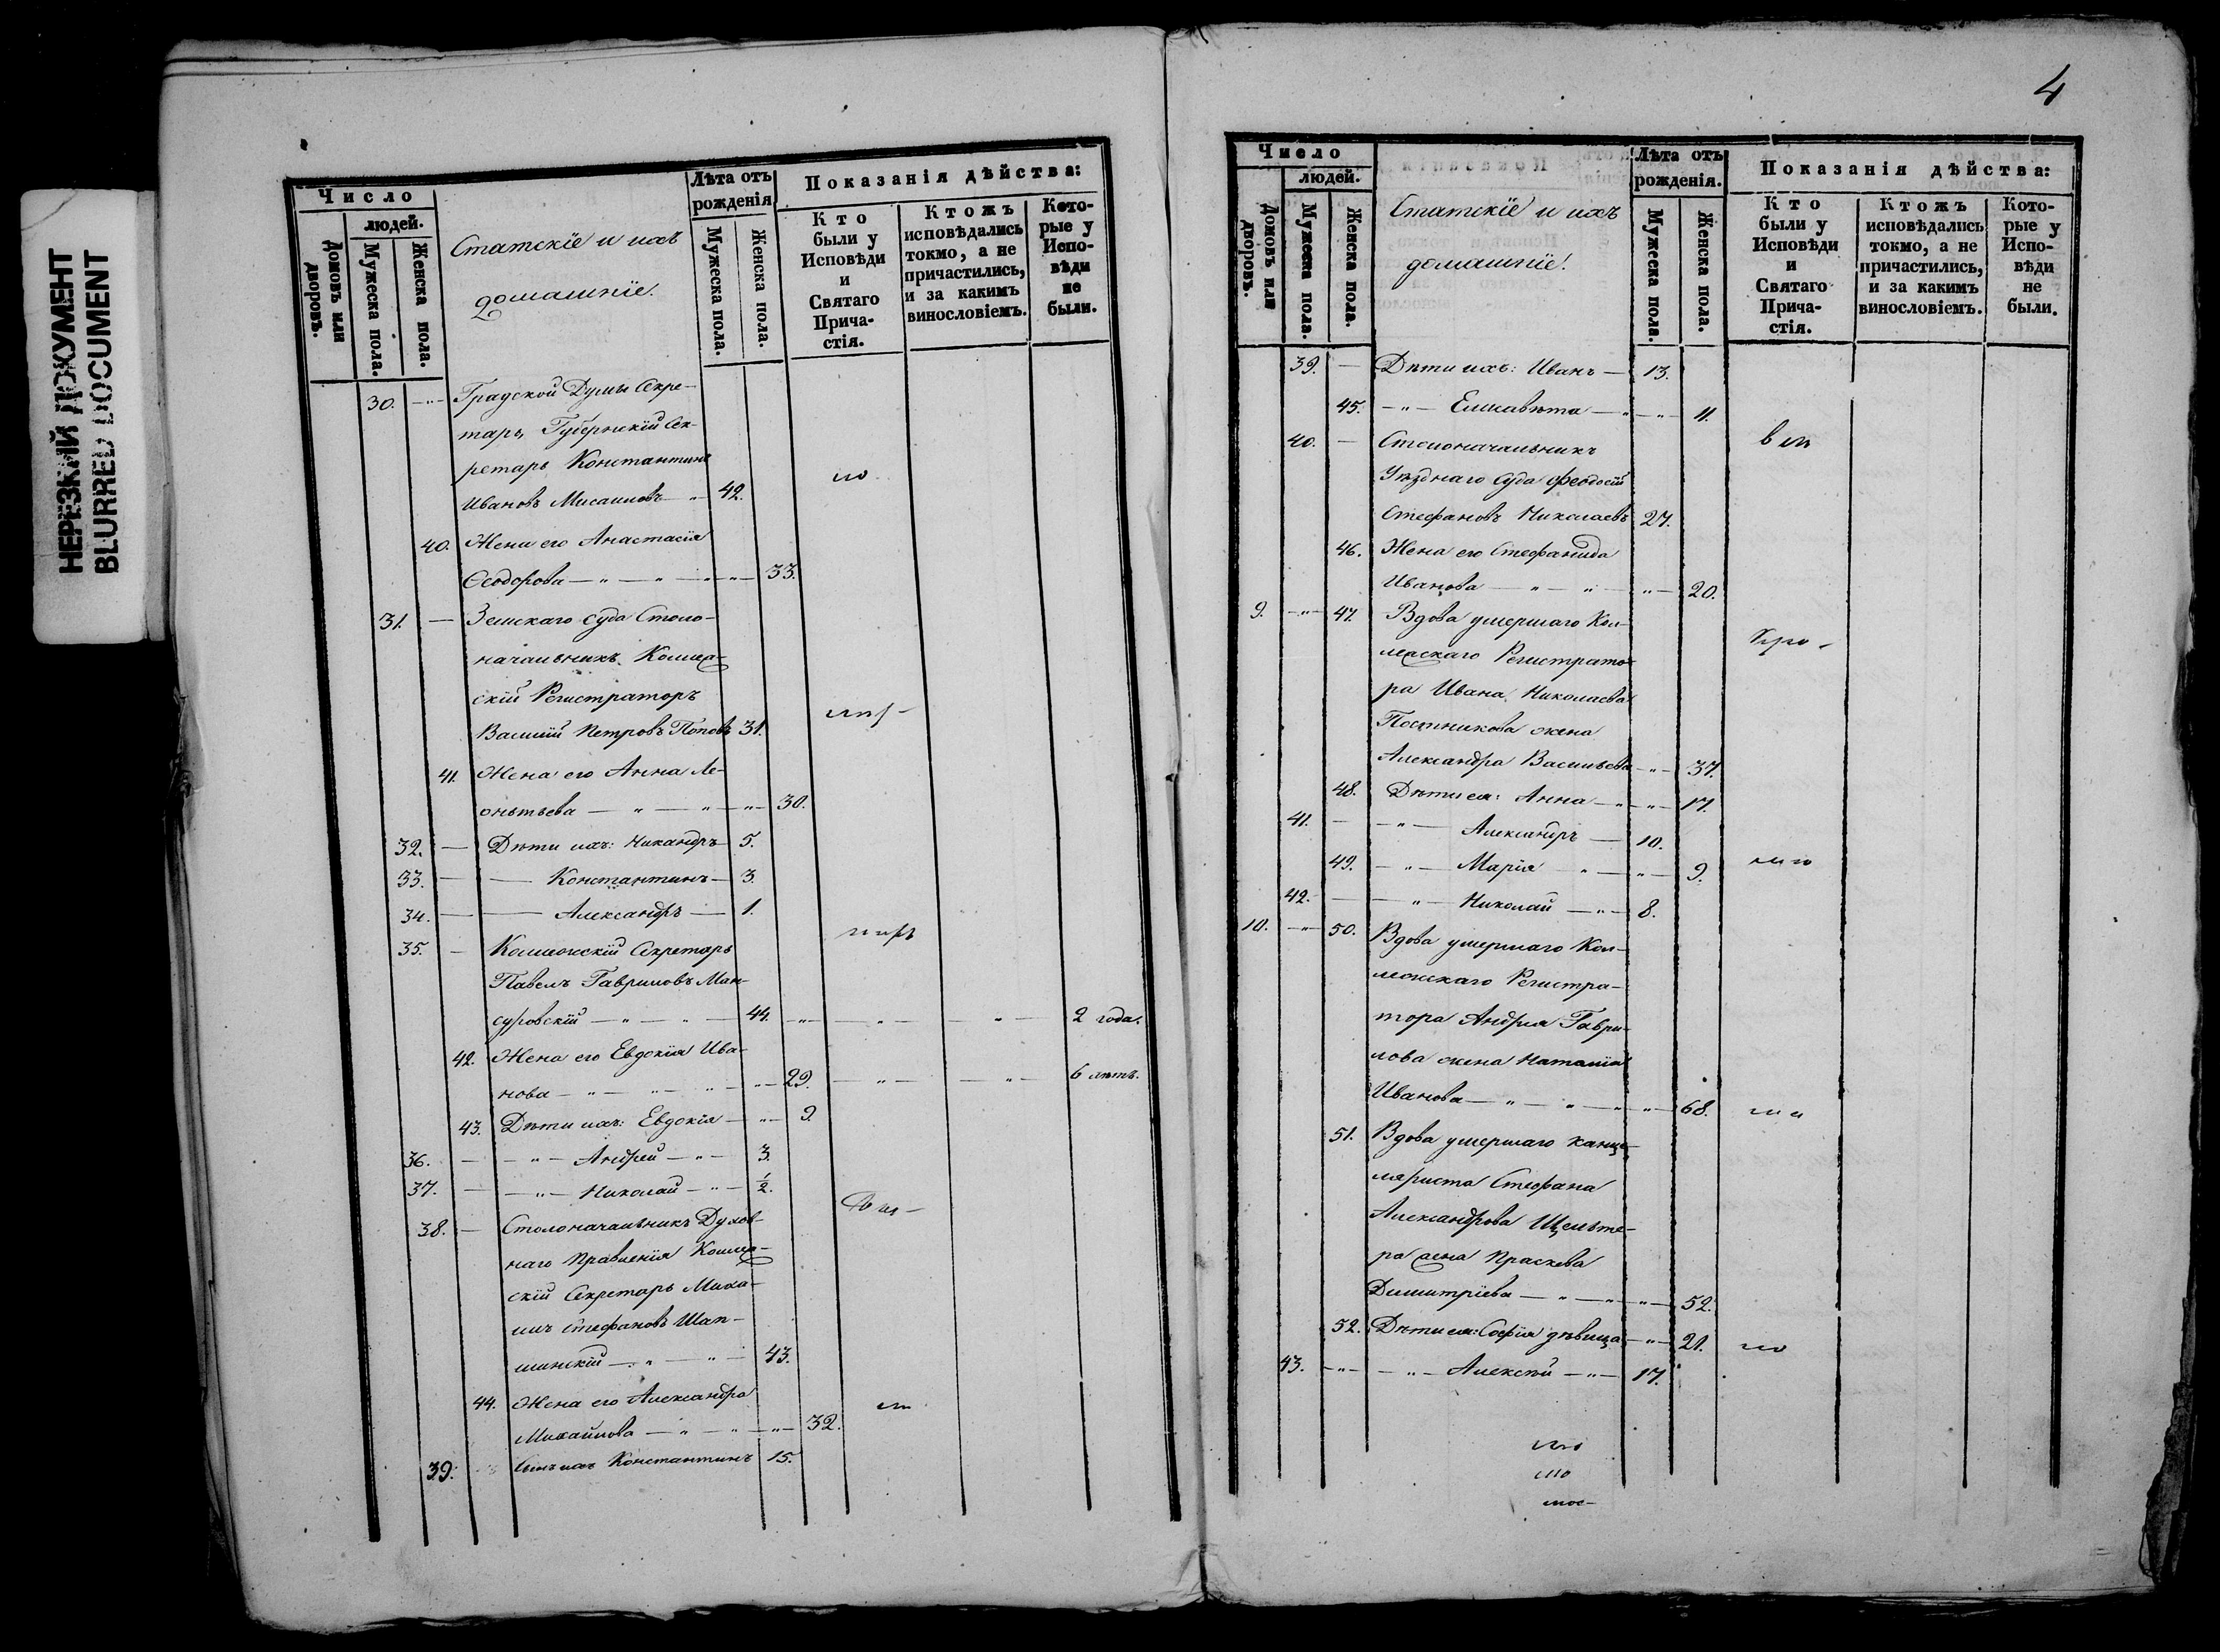 НЕРЕЗКИЙ ДОКУМЕНТ
BLURRED DOCUMENT
Число
людей.
Домовъ или дворовъ.
Мужеска пола.
Женска пола.
Статскіе и ихъ
домашніе.
Лѣта отъ рожденія
Мужеска пола.
Женска пола.
Показанія дѣйства:
Кто были у Исповѣди и Святаго Прича-стія.
Ктожъ исповѣдались токмо, а не причастились, и за какимъ винословіемъ.
Кото-рые у Испо-вѣди не были.
30. —"— Градской Думы Секре-
тарь, Губернскій Сек-
ретарь Константинъ
Ивановъ —"— 42.
40. Жена его Анастасія
Ѳеодорова — " — " — " — 33.
31. — Земскаго Суда Столо-
начальникъ, Коллеж-
скій Регистраторъ
Василій Петровъ Поповъ 31.
41. Жена его Анна Ле-
онтьева — " — " — " — 30.
32. — Дѣти ихъ: Никандръ 5.
33. — — Константинъ — 3.
34. — — Александръ — 1.
35. — Коллежскій Секретарь
Павелъ Гавриловъ Ман-
суровскій — " — " — 44. — " — " — " — 2 года.
42. Жена его Евдокія Ива-
нова — " — " — " — " — 29. — " — " — 6 лѣтъ.
43. Дѣти ихъ: Евдокія — " — 9.
36. — — " — Андрей — " — 3.
37. — — " — Николай — " — 1/2.
38. — Столоначальникъ Духов-
наго Правленія Коллеж-
скій Секретарь Миха-
илъ Стефановъ Шап-
шинскій — " — " — 43.
44. Жена его Александра
Михайлова — " — " — " — 32.
39. Сынъ ихъ Константинъ 15.
4
Число
людей.
Домовъ или дворовъ.
Мужеска пола.
Женска пола.
Статскіе и ихъ
домашніе.
Лѣта отъ рожденія.
Мужеска пола.
Женска пола.
Показанія дѣйства:
Кто были у Исповѣди и Святаго Прича-стія.
Ктожъ исповѣдались токмо, а не причастились, и за какимъ винословіемъ.
Кото-рые у Испо-вѣди не были.
39. — Дѣти ихъ: Иванъ — 13.
45. — " — Елисавета — " — " — 11.
40. — Столоначальникъ
Уѣзднаго Суда Феодосій
Стефановъ Николаевъ 27.
46. Жена его Стефанида
Иванова — " — " — " — 20.
9. —"— 47. Вдова умершаго Кол-
лежскаго Регистрато-
ра Ивана Николаева
Постникова жена
Александра Васильева — " — 37.
48. Дѣти ея: Анна — " — " — 17.
41. — — " — Александръ — 10.
49. — " — Марія — " — " — 9.
42. — — " — Николай — " — 8.
10. —"— 50. Вдова умершаго Кол-
лежскаго Регистра-
тора Андрея Гаври-
лова жена Наталія
Иванова — " — " — " — 68.
51. Вдова умершаго канце-
ляриста Стефана
Александрова
жена Праскева
Димитріева — " — " — " — 52.
52. Дѣти ея: Софія дѣвица — " — 21.
43. —"— — " — Алексѣй — " — 17.